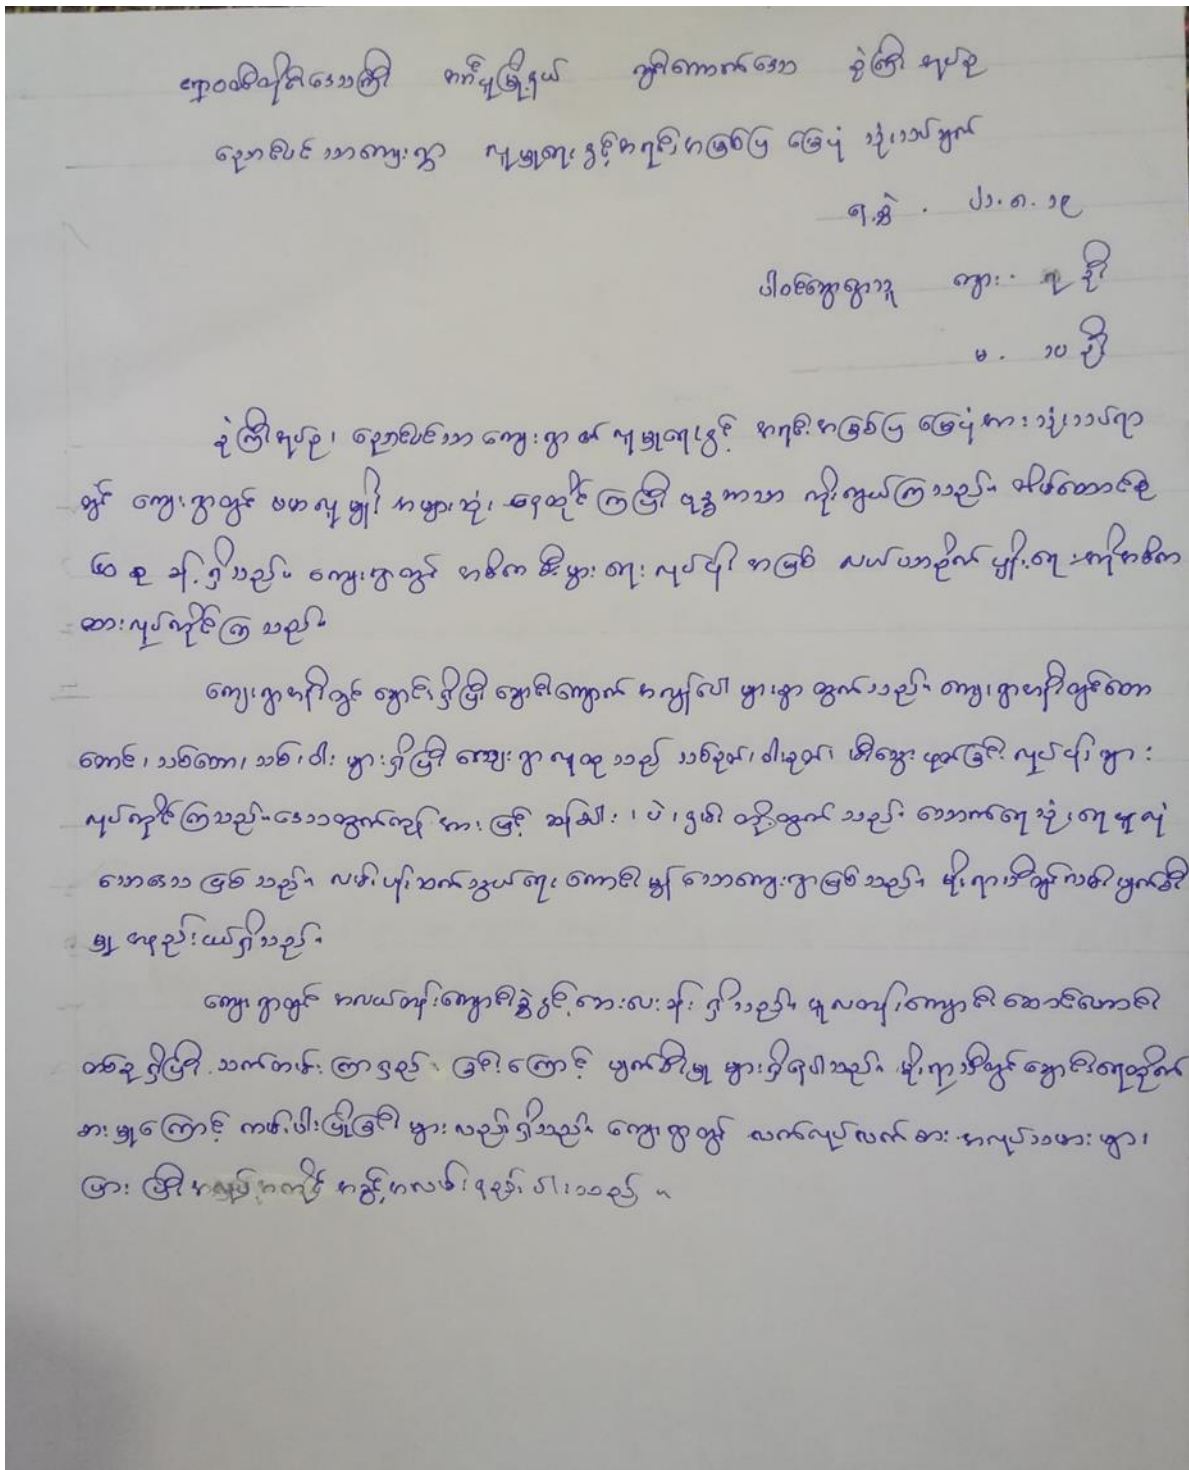 ဧရာဝတီတိုင်းဒေသကြီး အင်္ဂပူမြို့နယ် ကွင်းကောက်ဒေသ ခွဲကြီး အုပ်စု
ညောင်ပင်သာကျေးရွာ လူမှုရေးနှင့်အရင်းအမြစ်ပြ မြေပုံ သုံးသပ်ချက်
ရ.စွဲ . ၂၁.၈.၁၉
ပါဝင်ဆွေးနွေးသူ ကျား . ဦး
မ . ၁၀ ဦး
ခွဲကြီးအုပ်စု၊ ညောင်ပင်သာ ကျေးရွာ ၏ လူမှုရေးနှင့် အရင်းအမြစ်ပြ မြေပုံအား သုံးသပ်ရာ
တွင် ကျေးရွာတွင် ဗမာလူမျိုး အများဆုံး နေထိုင်ကြပြီး ဗုဒ္ဓဘာသာ ကိုးကွယ်ကြသည်။ အိမ်ထောင်စု
၆၀ စု ခန့်ရှိသည်။ ကျေးရွာတွင် အဓိက စီးပွားရေး လုပ်ငန်း အဖြစ် လယ်ယာစိုက်ပျိုးရေးကိုအဓိက
ထားလုပ်ကိုင်ကြသည်။
ကျေးရွာအနီးတွင် ချောင်းရှိပြီး ချောင်းကျောက် အလွန်ပေါများစွာ ထွက်သည်။ ကျေးရွာအနီးတွင်တော
တောင်၊ သစ်တော၊ သစ်၊ ဝါး များရှိပြီး ကျေးရွာလူထုသည် သစ်ခုတ်၊ ဝါးခုတ်၊ မီးသွေးဖုတ်ခြင်း လုပ်ငန်းများ
လုပ်ကိုင်ကြသည်။ ဒေသထွက်ကုန် အားဖြင့် ဆန်စပါး၊ ပဲ၊ နှမ်း တို့ထွက်သည်။ သောက်ရေသုံးရေဖူလုံ
သောဒေသဖြစ်သည်။ လမ်းပန်းဆက်သွယ်ရေး ကောင်းမွန်သောကျေးရွာဖြစ်သည်။ မိုးရာသီတွင်လမ်းပျက်စီး
မှု အနည်းငယ်ရှိသည်။
ကျေးရွာတွင် အလယ်တန်းကျောင်းခွဲနှင့်ဆေးပေးခန်း ရှိသည်။ မူလတန်းကျောင်းဆောင်ဟောင်း
တစ်ခုရှိပြီး သက်တမ်းကြာရှည် ခြင်းကြောင့် ပျက်စီးမှု များရှိနေပါသည်။ မိုးရာသီတွင်ချောင်းရေတိုက်
စားမှုကြောင့် ကမ်းပါးပြိုခြင်း များလည်းရှိသည်။ ကျေးရွာတွင် လက်လုပ်လက်စား အလုပ်သမားများ
များပြီးအလုပ်အကိုင် အခွင့်အလမ်းနည်းပါးသည်။